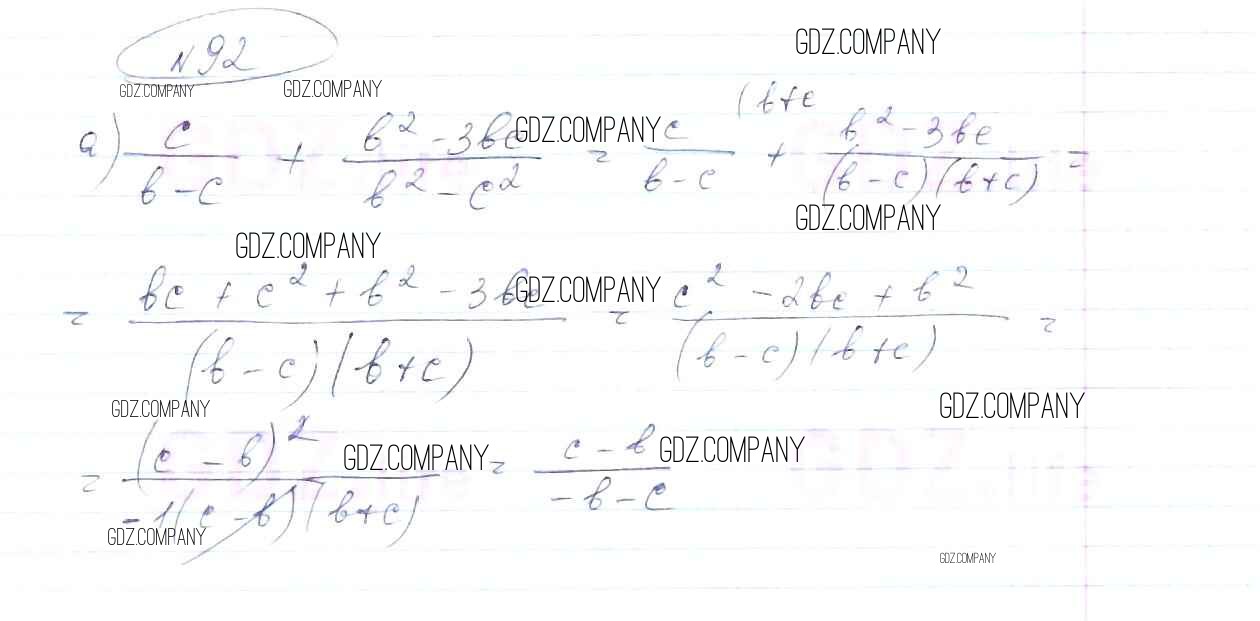 №92
GDZ.COMPANY
GDZ.COMPANY GDZ.COMPANY
(b+c
а) c/(b-c) + (b²-3bc)/(b²-c²) = c/(b-c) + (b²-3bc)/((b-c)(b+c)) =
GDZ.COMPANY
GDZ.COMPANY
GDZ.COMPANY
= (bc+c²+b²-3bc)/((b-c)(b+c)) = (c²-2bc+b²)/((b-c)(b+c)) =
GDZ.COMPANY
GDZ.COMPANY
GDZ.COMPANY
= (c-b)²/(-1(c-b)(b+c)) = (c-b)/(-b-c)
GDZ.COMPANY
GDZ.COMPANY
GDZ.COMPANY
GDZ.COMPANY